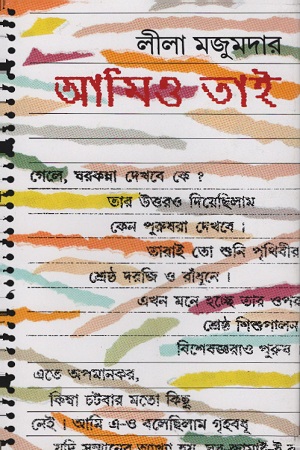 লীলা মজুমদার
আমিও তাই
গেলে, ঘরকন্না দেখবে কে ?
তার উত্তরও দিয়েছিলাম
কেন পুরুষরা দেখবে ।
তারাই তো শুনি পৃথিবীর
শ্রেষ্ঠ দরজি ও রাঁধুনে ।
এখন মনে হচ্ছে তার ওপর
শ্রেষ্ঠ শিশুপালন
বিশেষজ্ঞরাও পুরুষ
এতে অপমানকর,
কিম্বা চটবার মতো কিছু
নেই । আমি এ-ও বলেছিলাম গৃহবধূ
যদি সম্মানের আখ্যা হয়, ঘর-জামাই-ই বা